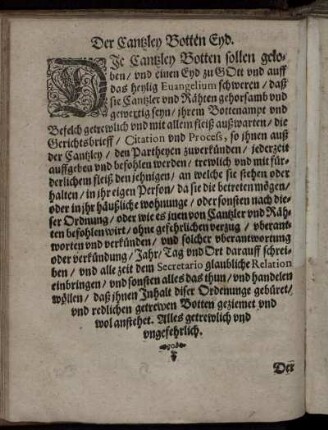 Der Cantzley Botten Eyd.
DIe Cantzley Botten sollen gelo-
ben/ vnd einen Eyd zu GOtt vnd auff
das heylig Euangelium schweren/ daß
sie Cantzler vnd Rähten gehorsamb vnd
gewertig seyn/ jhrem Bottenampt vnd
Befelch getrewlich vnd mit allem fleiß außwarten/ die
Gerichtsbrieff/ Citation vnd Process, so jhnen auß
der Cantzley/ den Partheyen zuverkünden/ jederzeit
auffgeben vnd befohlen werden/ trewlich vnd mit für-
derlichem fleiß den jehnigen/ an welche sie stehen oder
halten/ in jhr eigen Person/ da sie die betretten mögen/
oder in jhr häußliche wohnunge/ oder sonsten nach die-
ser Ordnung/ oder wie es jnen von Cantzler vnd Räh-
ten befohlen wirt/ ohne gefehrlichen verzug/ vberant-
worten vnd verkünden/ vnd solcher vberantwortung
oder verkündung/ Jahr/ Tag vnd Ort darauff schrei-
ben/ vnd alle zeit dem Secretario glaubliche Relation
einbringen/ vnd sonsten alles das thun/ vnd handelen
wöllen/ daß jhnen Inhalt diser Ordenunge gebüret/
vnd redlichen getrewen Botten geziemet vnd
wol anstehet. Alles getrewlich vnd
vngefehrlich.
Der